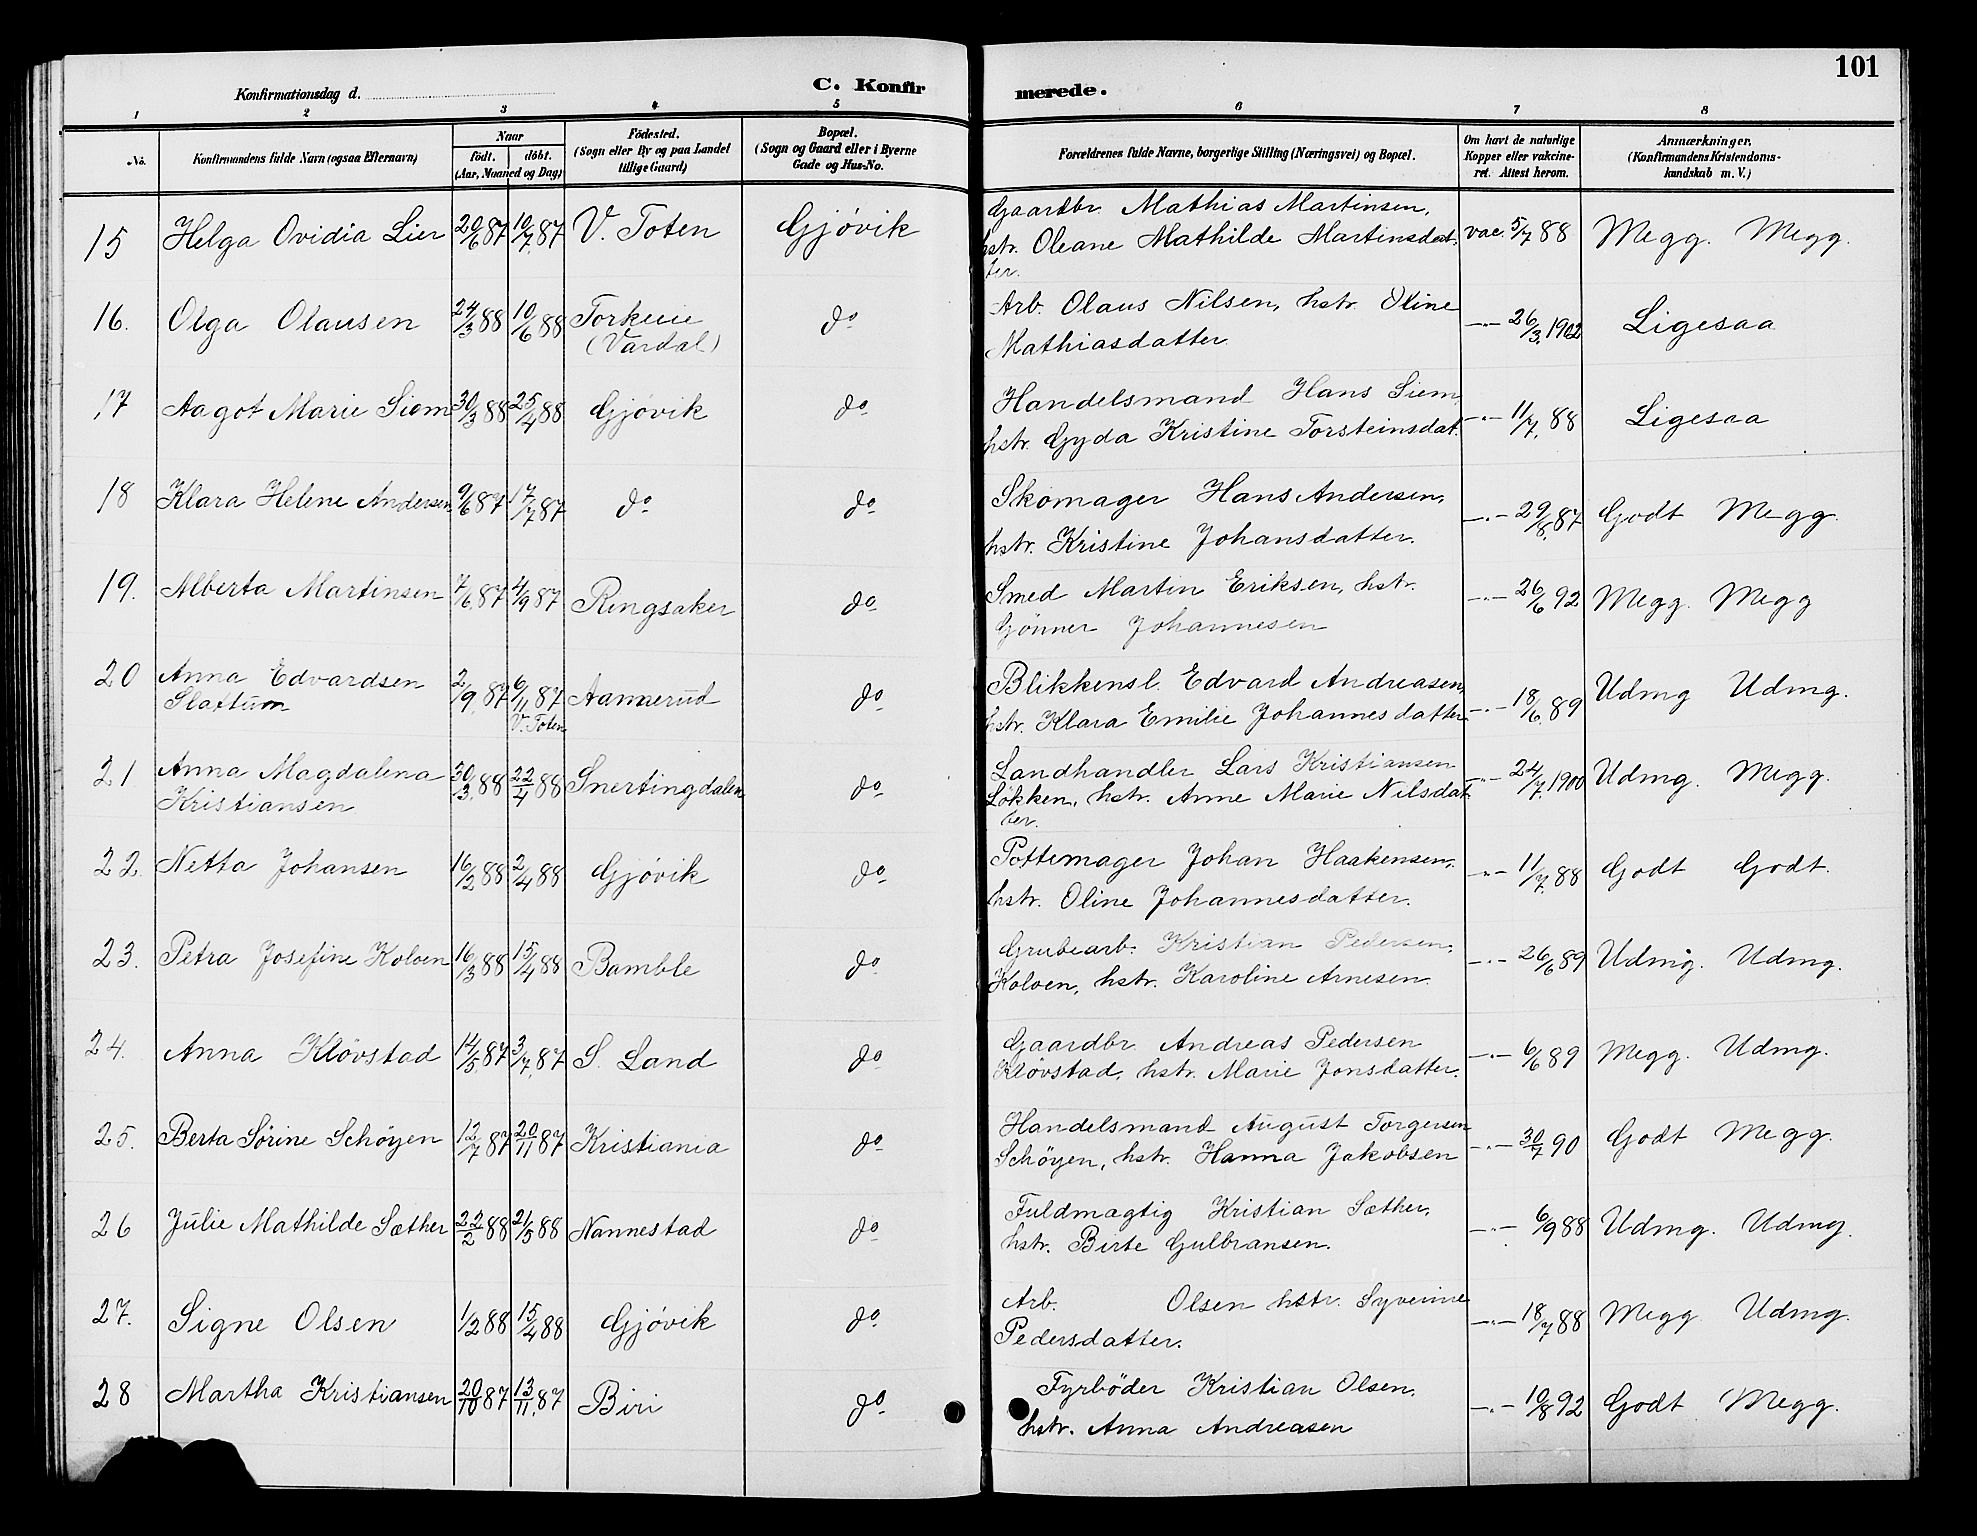 101
Konfirmationsdag d.
C. Konfirmerede.
1 2 3 4 5 6 7 8
No. Konfirmandens fulde Navn (ogsaa Efternavn) Naar födt. döbt. (Aar, Maaned og Dag) Födested. (Sogn eller By og paa Landet tillige Gaard) Bopæl. (Sogn og Gaard eller i Byerne Gade og Hus-No. Forældrenes fulde Navne, borgerlige Stilling (Næringsvei) og Bopæl. Om havt de naturlige Kopper eller vakcineret. Attest herom. Anmærkninger. (Konfirmandens Kristendomskundskab m. V.)
15 Helga Ovidia Lier 20/6 87 10/7 87 V. Toten Gjövik Gaardbr. Mathias Martinsen, hstr. Oleane Mathilde Martinsdatter. vac. 5/7 88 Megg. Megg.
16. Olga Olausen 24/3 88 10/6 88 (Vardal) do Arb. Olaus Nilsen, hstr. Oline Mathiasdatter —"— 26/3. 1902 Ligesaa
17 Aagot Marie Siem 30/3 88 25/4 88 Gjövik do Handelsmand Hans Siem hstr. Gyda Kristine Torsteinsdat. —"— 11/7. 88 Ligesaa
18 Klara Helene Andersen 9/6 87 17/7 87 do do Skomager Hans Andersen, hstr. Kristine Johansdatter. —"— 29/8. 87 Godt Megg.
19. Alberta Martinsen 7/6. 87 4/9 87 Ringsaker do Smed Martin Eriksen, hstr. Gönner Johannesen —"— 26/6 92 Megg. Megg
20 Anna Edvardsen Slattum 2/9. 87 6/11 87 V. Toten Aannerud do Blikkensl. Edvard Andreasen, hstr. Klara Emilie Johannesdatter —"— 18/6. 89 Udmg Udmg.
21 Anna Magdalena Kristiansen 30/3. 88 22/4 88 Snertingdalen do Landhandler Lars Kristiansen Lökken, hstr. Anne Marie Nilsdatter. —"— 24/7. 1900 Udmg. Megg.
22. Netta Johansen 16/2 88 2/4 88 Gjövik do Pottemager Johan Haakensen, hstr. Oline Johannesdatter. —"— 11/7. 88 Godt Godt.
23. Petra Josefine Koloen 16/3 88 15/4 88 Bamble do Grubearb. Kristian Pedersen Koloen, hstr. Karoline Arnesen. —"— 26/6 89 Udmg. Udmg.
24. Anna Klövstad 14/5. 87 3/7. 87 S. Land do Gaardbr. Andreas Pedersen Klövstad, hstr. Marie Jonsdatter. —"— 6/6 89 Megg. Udmg.
25. Berta Sörine Schöyen 12/7 87 20/11 87 Kristiania do Handelsmand August Torgersen Schöyen, hstr. Hanna Jakobsen —"— 30/7 90 Godt Megg.
26 Julie Mathilde Sæther 22/2 88 21/5 88 Nannestad do Fuldmægtig Kristian Sæther, hstr. Birte Gulbransen. —"— 6/9 88 Udmg. Udmg.
27. Signe Olsen 1/2 88 15/4 88 Gjövik do Arb. Olsen hstr. Syverine Pedersdatter. —"— 18/7 88 Megg Udmg.
28 Martha Kristiansen 20/10 87 13/11. 87 Biri do Fyrböder Kristian Olsen, hstr. Anna Andreasen —"— 10/8 92 Godt Megg.